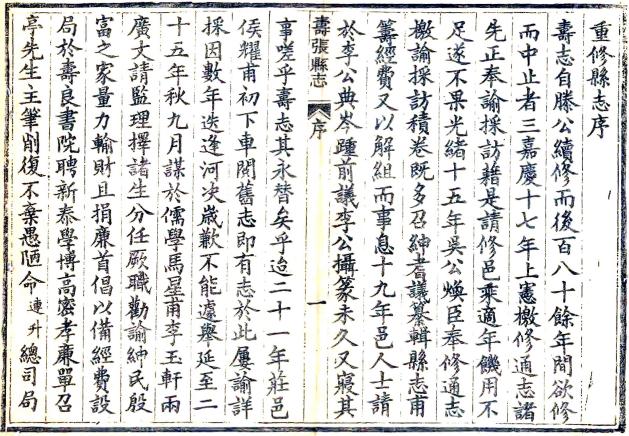 重修縣志序
壽志自滕公續修而後百八十餘年間欲修
而中止者三嘉慶十七年上憲檄修通志諸
先正奉諭採訪藉是請修邑乘適年饑用不
足遂不果光緒十五年吳公煥臣奉修通志
檄諭採訪積卷既多召紳耆議纂輯縣志甫
籌經費又以解組而事息十九年邑人士請
於李公典岑踵前議李公攝篆未久又寢其
壽張縣志
序
一
事嗟乎壽志其永替矣乎迨二十一年莊邑
侯耀甫初下車閱舊志即有志於此屢諭詳
採因數年迭逢河決歲歉不能遽舉延至二
十五年秋九月謀於儒學馬星甫李玉軒兩
廣文請監理擇諸生分任厥職勸諭紳民殷
富之家量力輸財且捐廉首倡以備經費設
局於壽良書院聘新泰學博高密孝廉單召
亭先生主筆削復不棄愚陋命連升總司局